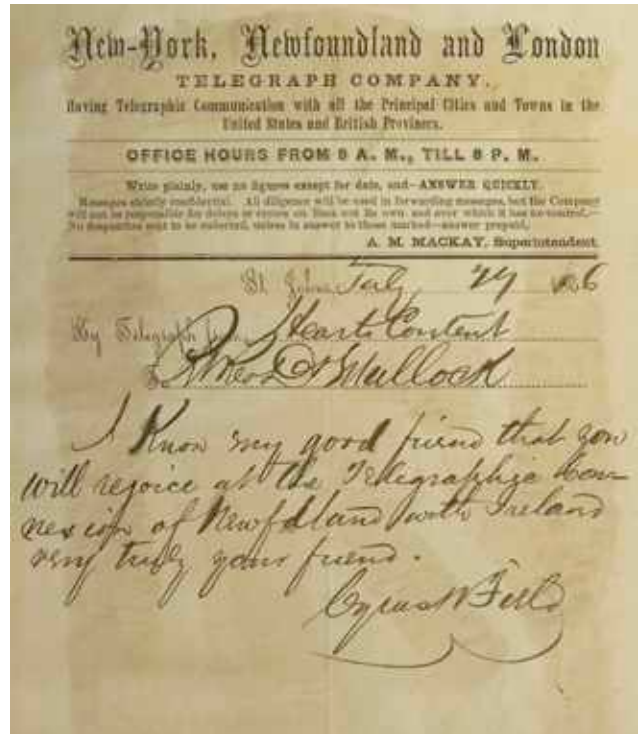 New-York, Newfoundland and London
TELEGRAPH COMPANY.
Having Telegraphic Communication with all the Principal Cities and Towns in the
United States and British Provinces.
OFFICE HOURS FROM 8 A. M., TILL 8 P. M.
Write plainly, use no figures except for date, and—ANSWER QUICKLY.
Messages strictly confidential. All diligence will be used in forwarding messages, but the Company
will not be responsible for delays or errors on lines not its own, and over which it has no control.—
No despatches sent to be collected, unless in answer to those marked—answer prepaid.
A. M. MACKAY, Superintendent.
St. Johns, 186
By Telegraph from Hearts Content
Mullock
I Know my good friend that you
will rejoice at the Telegraphic Con-
nexion of Newfdland with Ireland
very truly your friend.
Cyrus W Field